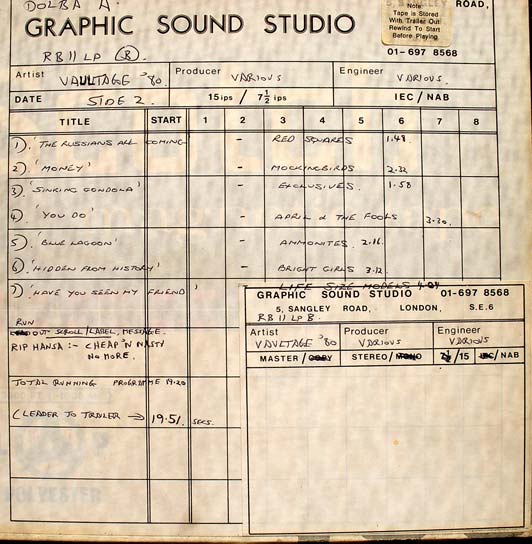 DOLBA A. ROAD,
GRAPHIC SOUND STUDIO
Note:
Tape is Stored
With Trailer Out
Rewind To Start
Before Playing
RB11 LP (B).
01-697 8568
Artist VAULTAGE '80 Producer VARIOUS Engineer VARIOUS.
DATE SIDE 2. 15ips / 7½ips IEC / NAB
TITLE START 1 2 3 4 5 6 7 8
1). 'THE RUSSIANS ARE COMING - RED SQUARES 1.48.
2). 'MONEY' - MOCKINGBIRDS 2.32
3). 'SINKING GONDOLA' - EXCLUSIVES. 1.58
4). 'YOU DO' - APRIL & THE FOOLS 3.30.
5). 'BLUE LAGOON' - AMMONITES. 2.16.
6). 'HIDDEN FROM HISTORY' - BRIGHT GIRLS 3.12.
7). 'HAVE YOU SEEN MY FRIEND' LIFE SIZE MODELS 4.04
RUN
OUT SCROLL/LABEL, MESSAGE.
RIP HANSA :- CHEAP 'N NASTY
NO MORE.
TOTAL RUNNING PROGRAMME 19.20
(LEADER TO TRAILER → 19.51. SECS.
GRAPHIC SOUND STUDIO 01-697 8568
5, SANGLEY ROAD, LONDON, S.E.6
RB11 LP B.
Artist Producer Engineer
VAULTAGE '80 VARIOUS VARIOUS
MASTER / COPY STEREO / MONO 7½ / 15 IEC / NAB